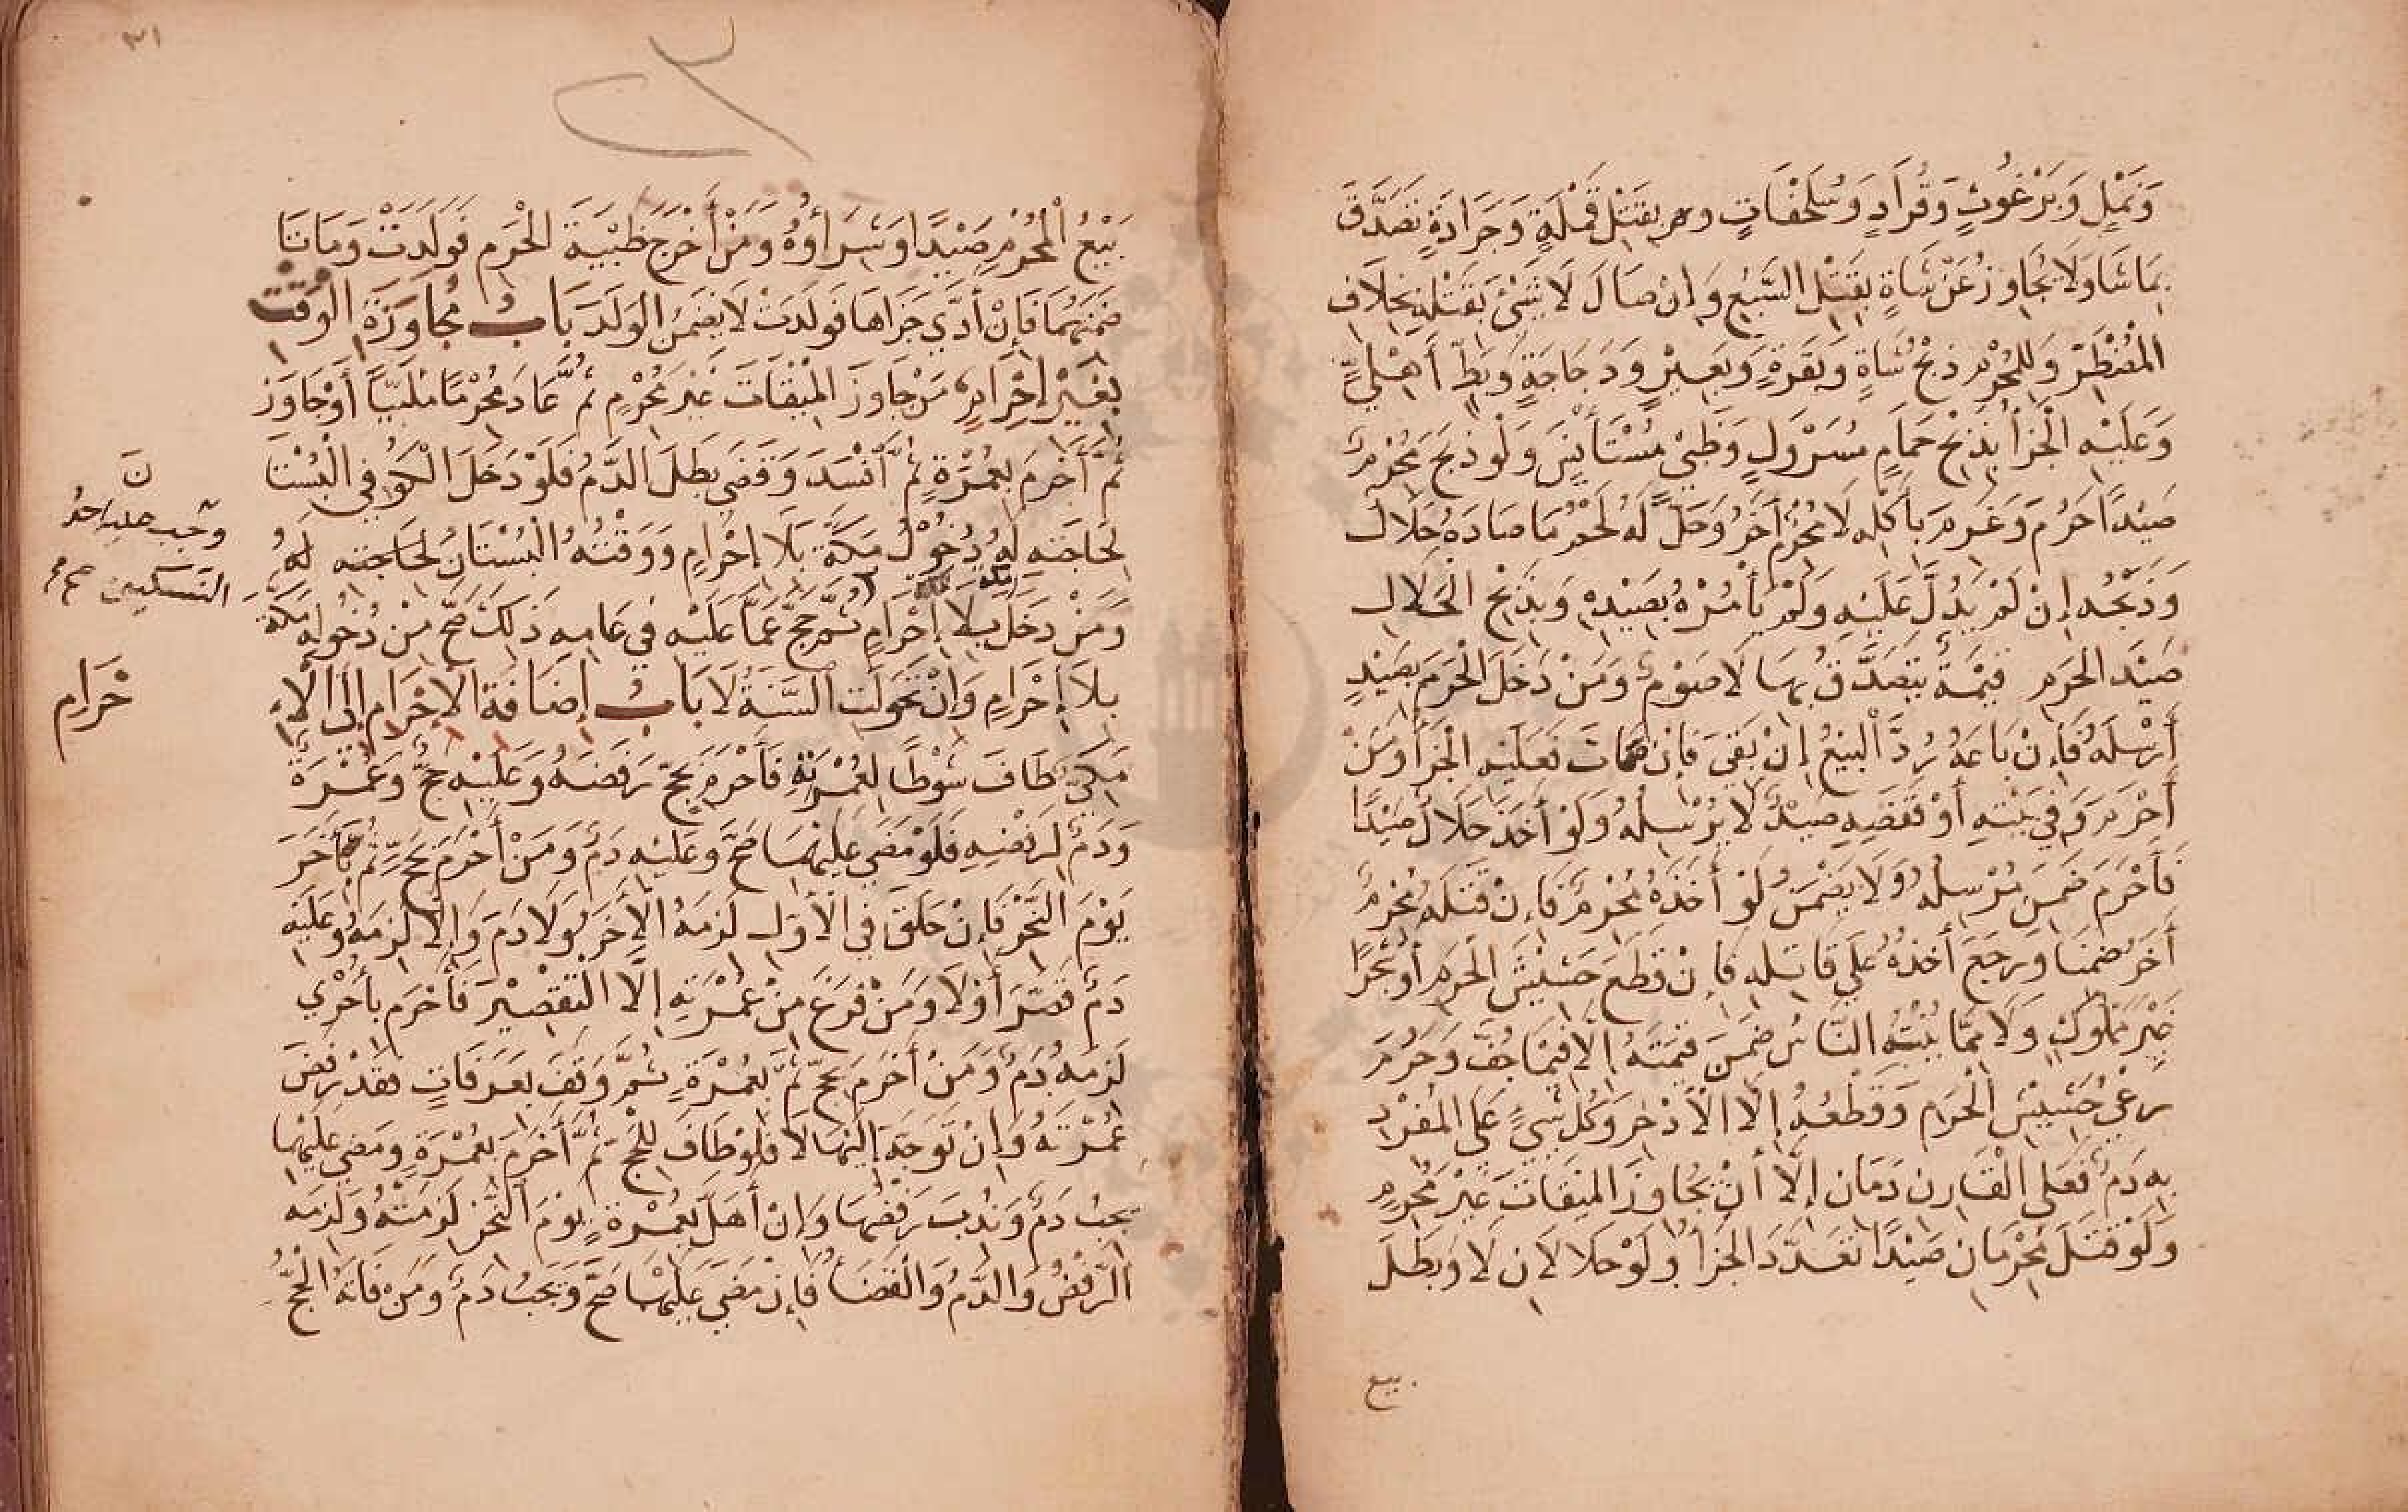 وَنَمْلٍ وَبَرْغُوثٍ وَقُرَادٍ وَسُلَحْفَاتٍ وبقتل قَمْلَةٍ وَجَرَادَةٍ تَصَدَّقَ
بِمَا شَا وَلَا يُجَاوزُ عَنْ شَاةٍ بِقَتْلِ السَّبُعِ وَإِنْ صَالَ لَا شَيْئَ بِقَتْلِهِ بِخِلَافِ
المُضْطَرِّ وَلِلْمُحْرِمِ ذَبْحُ شَاةٍ وَبَقَرَةٍ وَبَعِيرٍ وَدَجَاجَةٍ وَبَطٍّ أَهْلِيٍّ
وَعَلَيْهِ الْجَزَأُ بِذَبْحِ حَمَامٍ مُسَرْوَلٍ وَظَبْيٍ مُسْتَأْنِسٍ وَلَوْ ذَبَحَ مُحْرِمٌ
صَيْدًا حَرُمَ وَغَرِمَ بِأَكْلِهِ لَا مُحْرِمٌ آخَرُ وَحَلَّ لَهُ لَحْمُ مَا صَادَهُ حَلَالٌ
وَذَبَحُه إِنْ لَمْ يَدُلَّ عَلَيْهِ وَلَمْ يَأْمُرْهُ بِصَيْدِهِ وَبِذَبْحِ الْحَلَالِ
صَيْدَ الْحَرَمِ قِيْمَةٌ يَتَصَدَّقُ بِهَا لَا صَوْمٌ وَمَنْ دَخَلَ الْحَرَمَ بِصَيْدٍ
أَرْسَلَهُ فَإِنْ بَاعَهُ رُدَّ الْبَيْعُ إِنْ بَقِيَ وَإِنْ مَاتَ فَعَلَيْهِ الْجَزَأُ وَمَنْ
أَحْرَمَ وَفِي بَيْتِهِ أَوْ قَفَصِهِ صَيْدٌ لَا يُرْسِلُهُ وَلَوْ أَخَذَ حَلَالٌ صَيْدًا
فَأَحْرَمَ ضَمِنَ مُرْسِلُهُ وَلَا يَضْمَنُ لَوْ أَخَذَهُ مُحْرِمٌ فَإِنْ قَتَلَهُ مُحْرِمٌ
آخَرُ ضَمِنَا وَرَجَعَ أخذُهُ عَلَى قَاتِلِهِ فَإِنْ قَطَعَ حَشِيْشَ الْحَرَمِ أَوْ شَجَرًا
غَيْرَ مَمْلُوكٍ وَلَا مِمَّا يُنْبِتُهُ النَّاسُ ضَمِنَ قِيْمَتَهُ إِلَّا فِيْمَا جُفَّ وَحَرُمَ
رعْيُ حَشِيْشِ الْحَرَمِ وَقَطْعُهُ إِلَّا الْأذْخِرَ وَكُلُّ شَيْءٍ عَلَى الْمُفْرِدِ
بِهِ دَمٌ فَعَلَى الْقَارِنِ دَمَانِ إِلَّا أَنْ يُجَاوِزَ الْمِيْقَاتَ غَيْرَ مُحْرِمٍ
وَلَوْ قَتَلَ مُحْرِمَانِ صَيْدًا تَعَدَّدَ الْجَزَأُ وَلَوْ حَلَالَانِ لَا وَبَطَلَ
بيع
٣١
بَيْعُ الْمُحْرِمِ صَيْدًا وَشِرَاؤُهُ وَمَنْ أَخْرَجَ ظَبْيَةَ الْحَرَمِ فَوَلَدَتْ وَمَاتَا
ضَمِنَهُمَا فَإِنْ أَدَّى جَزَاهَا فَوَلَدَتْ لَا يَضْمَنُ الْوَلَدَ بَابُ مُجَاوَزَةِ الْوَقْتِ
بِغَيْرِ إِحْرَامٍ مَنْ جَاوَزَ الْمِيْقَاتَ غَيْرَ مُحْرِمٍ ثُمَّ عَادَ مُحْرِمًا مُلَبِّيًا أَوْ جَاوَزَ
ثُمَّ أَحْرَمَ بِعُمْرَةٍ ثُمَّ أَفْسَدَ وَقَضَى بَطَلَ الدَّمُ فَلَوْ دَخَلَ الْكُوفِي الْبُسْتَا
لِحَاجَتِهِ لَهُ دُخُوْلُ مَكَّةَ بِلَا إِحْرَامٍ وَوَقْتُهُ الْبُسْتَانُ لِحَاجَتِهِ لَهُ
وَمَنْ دَخَلَ مكة بِلَا إِحْرَامٍ ثُمَّ حَجَّ عَمَّا عَلَيْهِ فِي عَامِهِ ذَلِكَ صَحَّ مِنْ دُخُولِهِ مَكَّةَ
بِلَا إِحْرَامٍ وَإِنْ تَحَوَّلَتِ السَّنَةُ لَا بَابُ إِضَافَةِ الْإِحْرَامِ إِلَى الْإِ
مَكِيٌّ طَافَ شَوْطًا لِعُمْرَتِهِ فَأَحْرَمَ بِحَجٍّ رَفَضَهُ وَعَلَيْهِ حَجٌّ وَعُمْرَةٌ
وَدَمٌ لِرَفْضِهِ فَلَوْ مَضَى عَلَيْهِمَا صَحَّ وَعَلَيْهِ دَمٌ وَمَنْ أَحْرَمَ بِحَجٍّ ثُمَّ بِآخَرَ
يَوْمَ النَّحْرِ فَإِنْ حَلَقَ فِي الْأَوَّلِ لَزِمَهُ الْآخَرُ وَلَا دَمَ وَإِلَّا لَزِمَهُ وَعَلَيْهِ
دَمٌ قَصَّرَ أَوْ لَا وَمَنْ فَرَغَ مِنْ عُمْرَتِهِ إِلَّا التَّقْصِيْرَ فَأَحْرَمَ بِأُخْرَى
لَزِمَهُ دَمٌ وَمَنْ أَحْرَمَ بِحَجٍّ ثُمَّ بِعُمْرَةٍ ثُمَّ وَقَفَ بِعَرَفَاتٍ فَقَدْ رَفَضَ
عُمْرَتَهُ وَإِنْ تَوَجَّهَ إِلَيْهَا لَا فَلَوْ طَافَ لِلْحَجِّ ثُمَّ أَحْرَمَ بِعُمْرَةٍ وَمَضَى عَلَيْهِمَا
يَجِبُ دَمٌ وَنُدِبَ رَفْضُهَا وَإِنْ أَهَلَّ بِعُمْرَةٍ يَوْمَ النَّحْرِ لَزِمَتْهُ وَلَزِمَه
الرَّفْضُ وَالدَّمُ وَالْقَضَأُ فَإِنْ مَضَى عَلَيْهِمَا صَحَّ وَيَجِبُ دَمٌ وَمَنْ فَاتَهُ الْحَجُّ
نَ
وجب عليه احد
النسكين صح
حْرَامِ